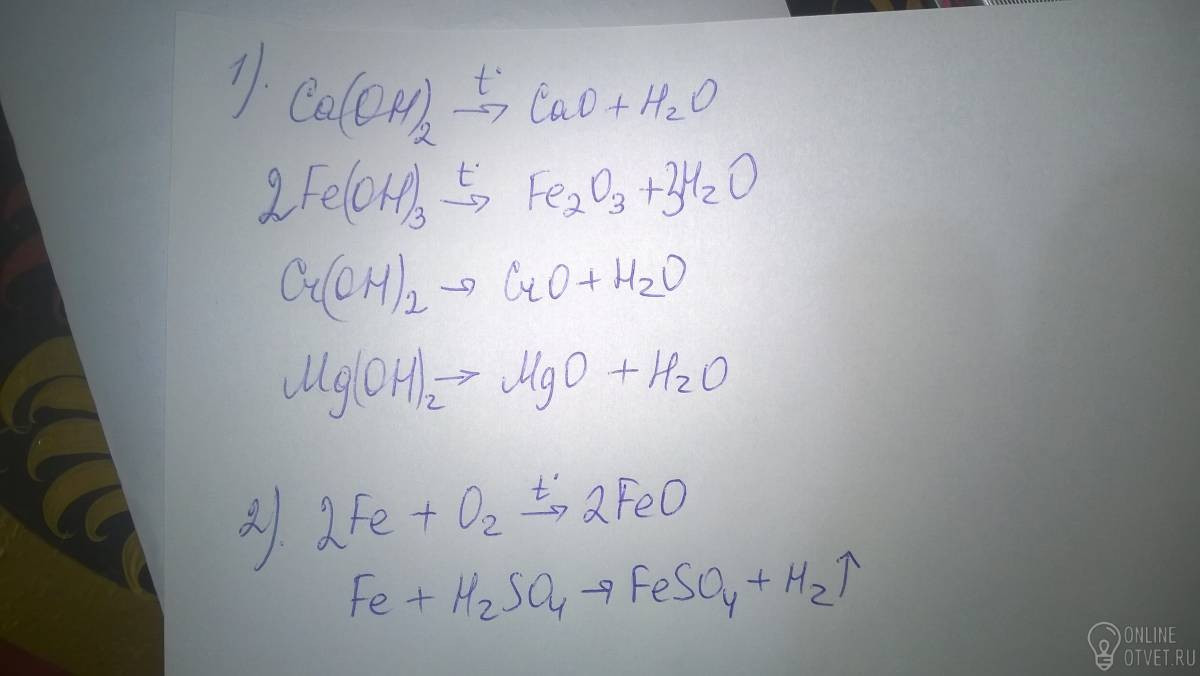 1). Ca(OH)₂ →t° CaO + H₂O
2Fe(OH)₃ →t° Fe₂O₃ + 3H₂O
Cr(OH)₂ → CrO + H₂O
Mg(OH)₂ → MgO + H₂O
2). 2Fe + O₂ →t° 2FeO
Fe + H₂SO₄ → FeSO₄ + H₂↑
ONLINE
OTVET.RU